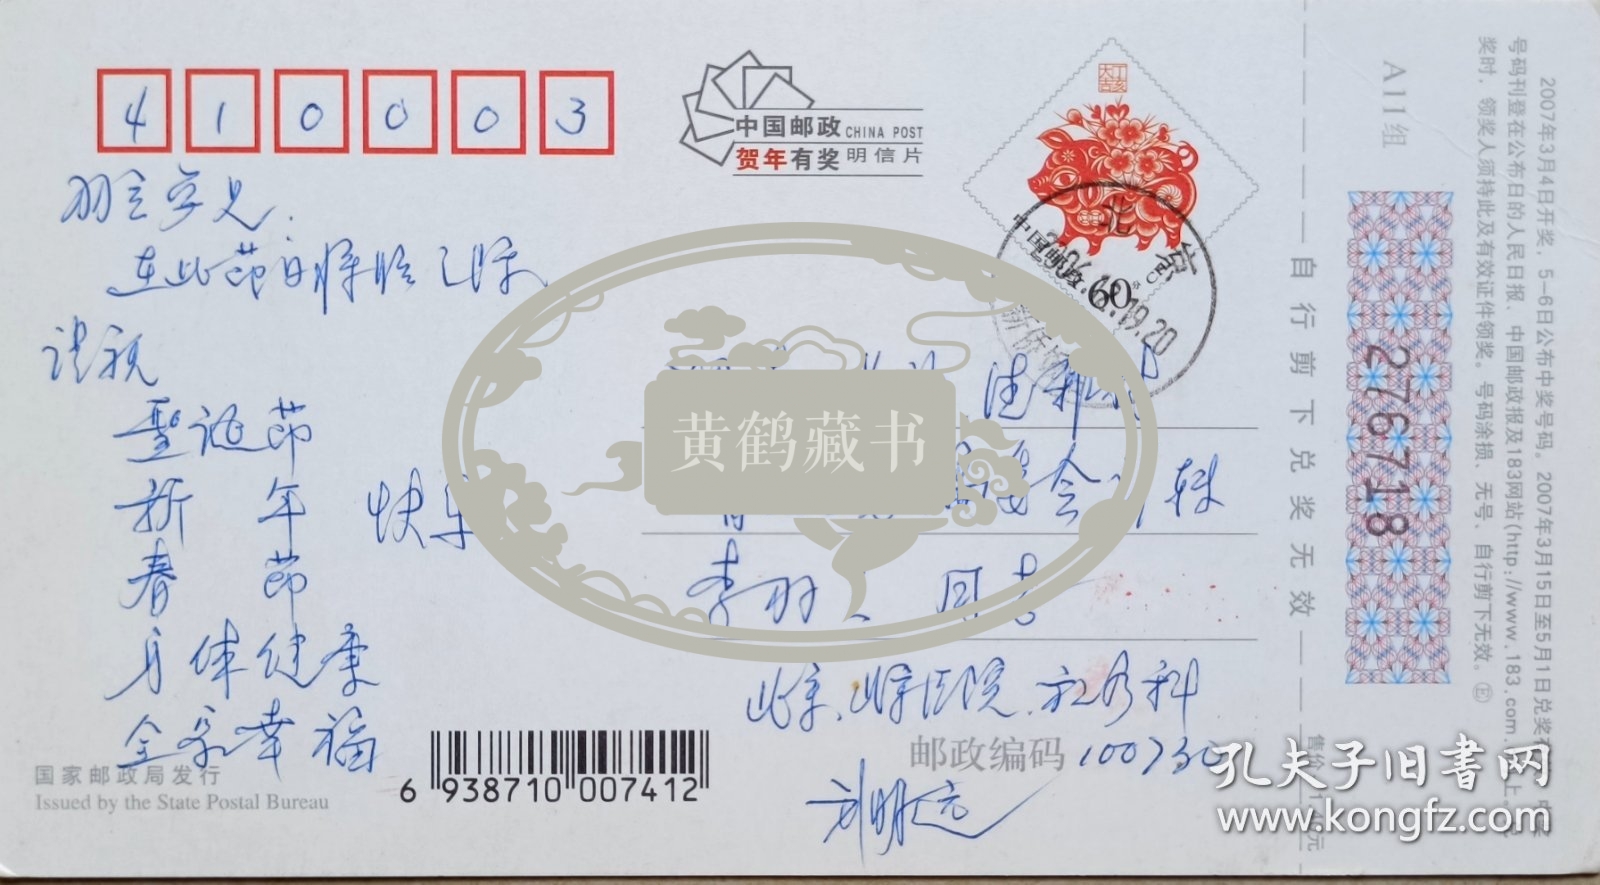 410003
中国邮政 CHINA POST
贺年有奖明信片
丁亥大吉
中国邮政
60分
CHINA
北京
2006.12.19.20
羽立学兄.
在此节日将临之际
谨祝
圣诞节
新 年 快乐
春 节
身体健康
全家幸福
黄鹤藏书
李羽立 同志
北京.北京医院.神外科
邮政编码 100730
刘明远
国家邮政局发行
Issued by the State Postal Bureau
6 938710 007412
自行剪下兑奖无效
A11组
276718
2007年3月4日开奖，5-6日公布中奖号码。2007年3月15日至5月1日兑奖
号码刊登在公布日的人民日报、中国邮政报及183网站(http://www.183.com.
奖时，领奖人须持此及有效证件领奖。号码涂损、无号、自行剪下无效。
孔夫子旧书网
www.kongfz.com